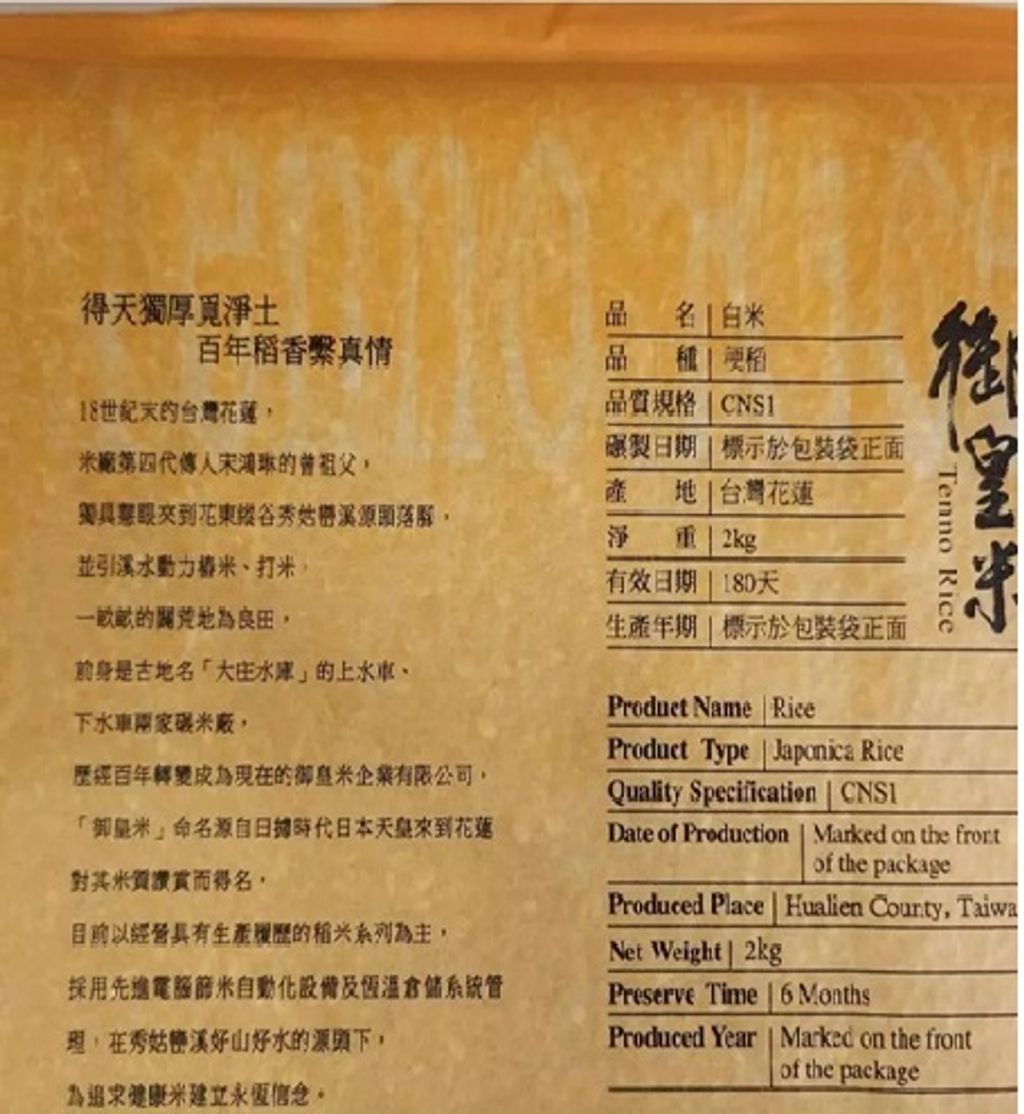 得天獨厚覓淨土
百年稻香繫真情
18世紀末的台灣花蓮，
米廠第四代傳人宋鴻琳的曾祖父，
獨具慧眼來到花東縱谷秀姑巒溪源頭落腳，
並引溪水動力樁米、打米，
一畝畝的闢荒地為良田，
前身是古地名「大庄水庫」的上水車、
下水車兩家碾米廠，
歷經百年轉變成為現在的御皇米企業有限公司，
「御皇米」命名源自日據時代日本天皇來到花蓮
對其米質讚賞而得名，
目前以經營具有生產履歷的稻米系列為主，
採用先進電腦篩米自動化設備及恆溫倉儲系統管
理，在秀姑巒溪好山好水的源頭下，
為追求健康米建立永恆信念。
品名 白米
品種 粳稻
品質規格 CNS1
碾製日期 標示於包裝袋正面
產地 台灣花蓮
淨重 2kg
有效日期 180天
生產年期 標示於包裝袋正面
御皇米
Tenno Rice
Product Name Rice
Product Type Japonica Rice
Quality Specification CNS1
Date of Production Marked on the front
of the package
Produced Place Hualien County, Taiwa
Net Weight 2kg
Preserve Time 6 Months
Produced Year Marked on the front
of the package